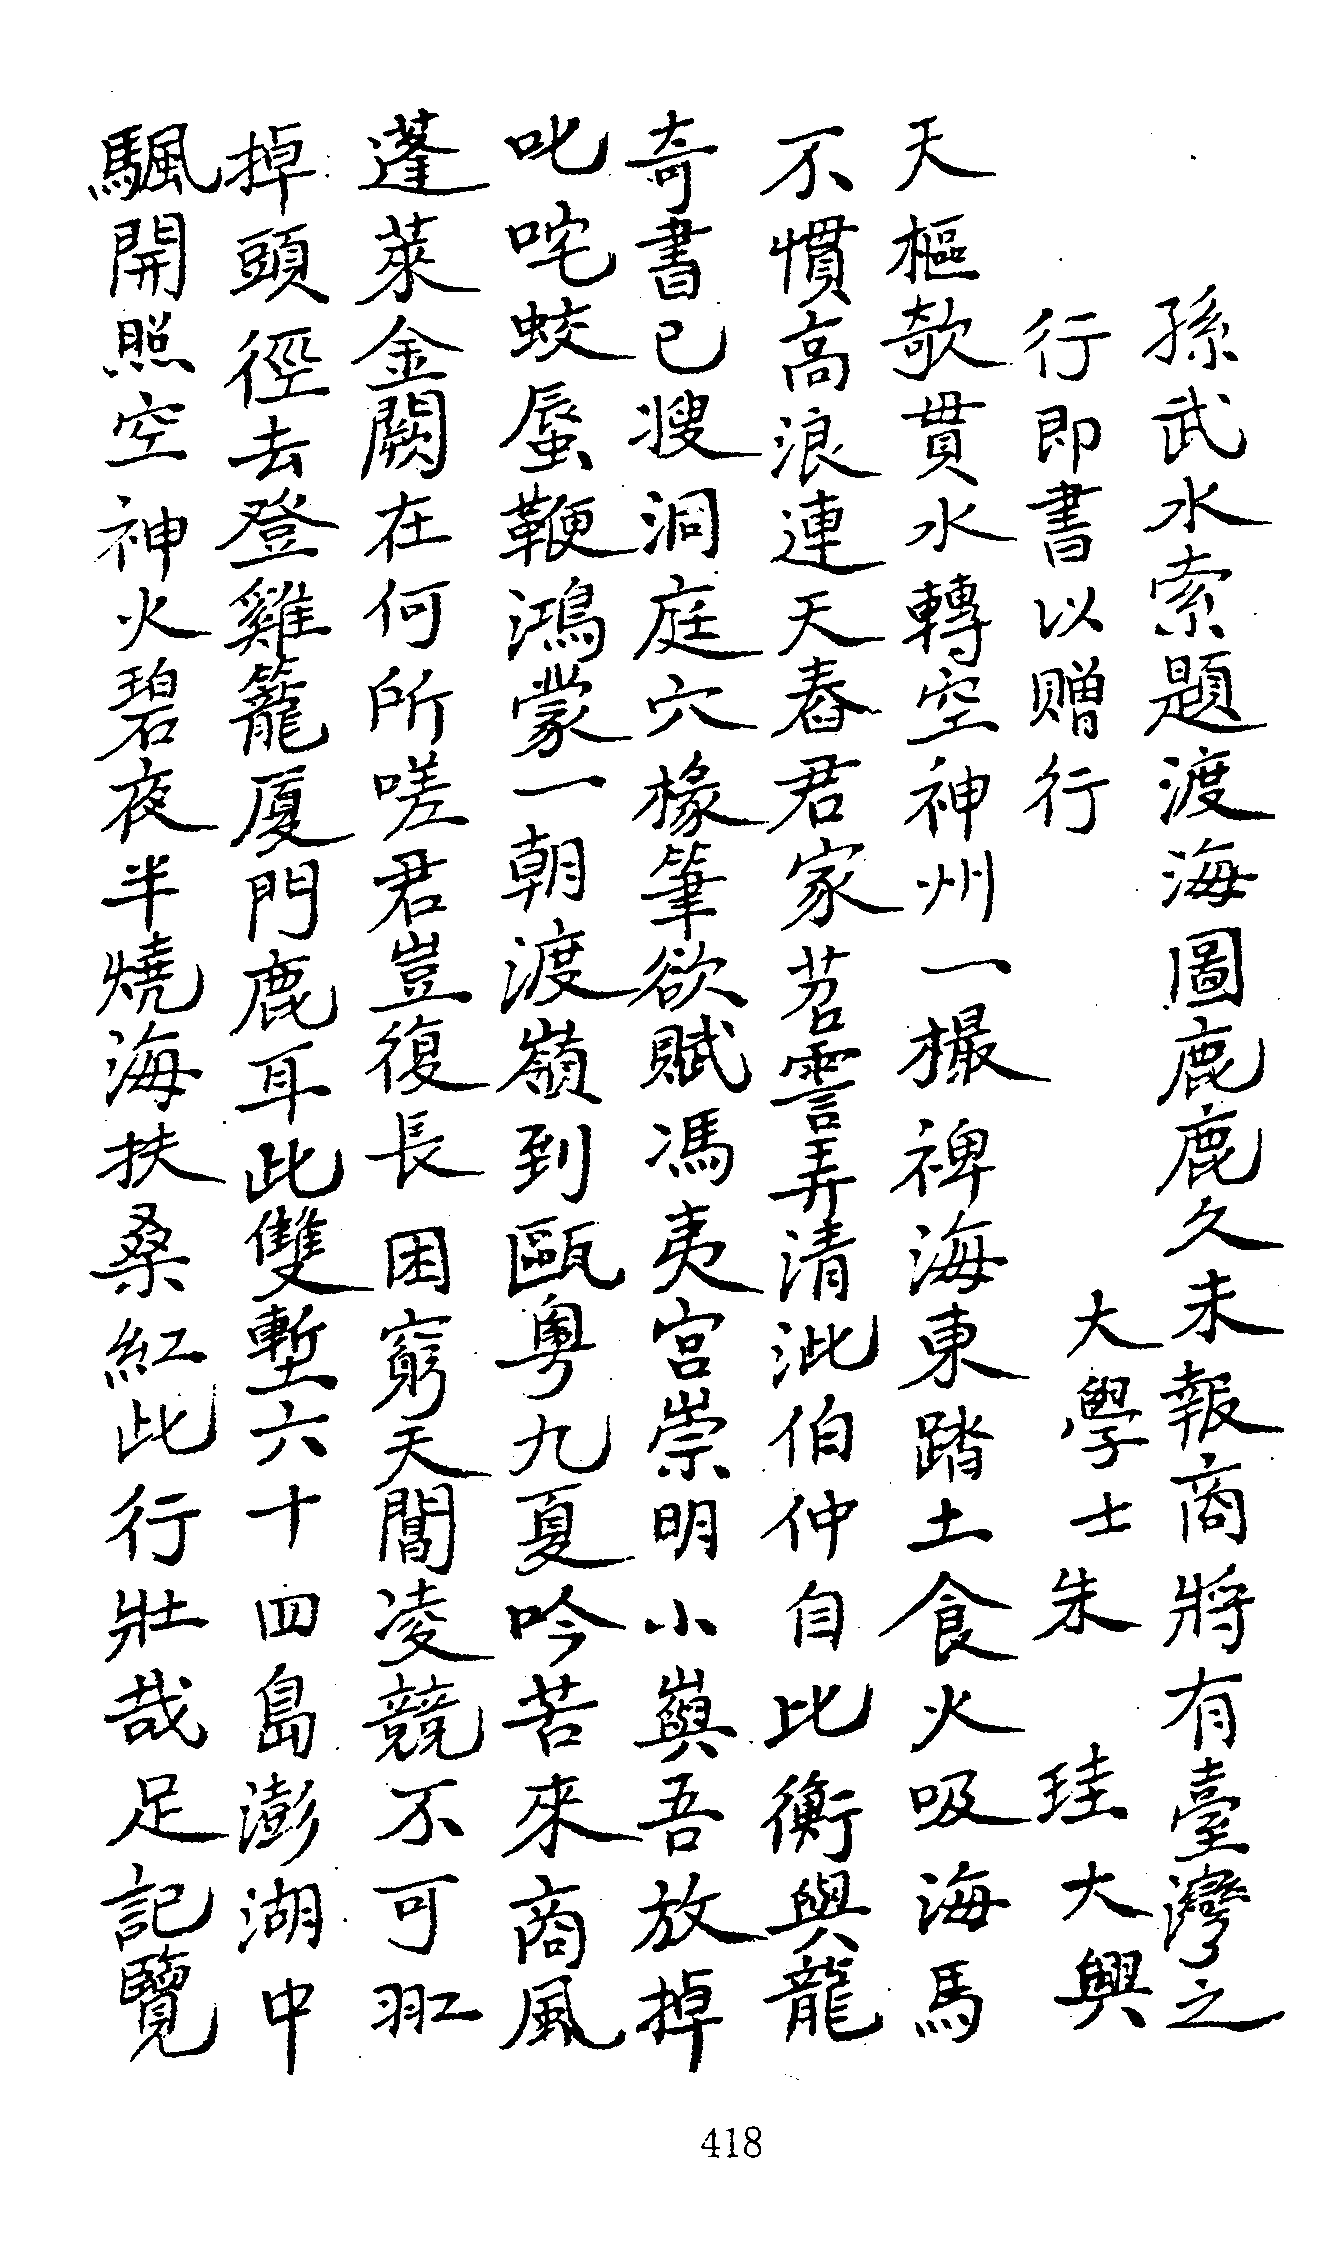 孫武水索題渡海圖鹿鹿久未報商將有臺灣之
行即書以贈行
大學士朱　珪大興
天樞欹貫水轉空神州一撮裨海東踏土食火吸海馬
不慣高浪連天舂君家苕霅弄清泚伯仲自比衡與龍
奇書已搜洞庭穴椽筆欲賦馮夷宮崇明小嶼吾放掉
叱咤蛟蜃鞭鴻蒙一朝渡嶺到甌粵九夏吟苦來商風
蓬萊金闕在何所嗟君豈復長困窮天閶凌競不可羾
掉頭徑去登雞籠厦門鹿耳此雙塹六十四島澎湖中
颿開照空神火碧夜半燒海扶桑紅此行壯哉足記覽
418